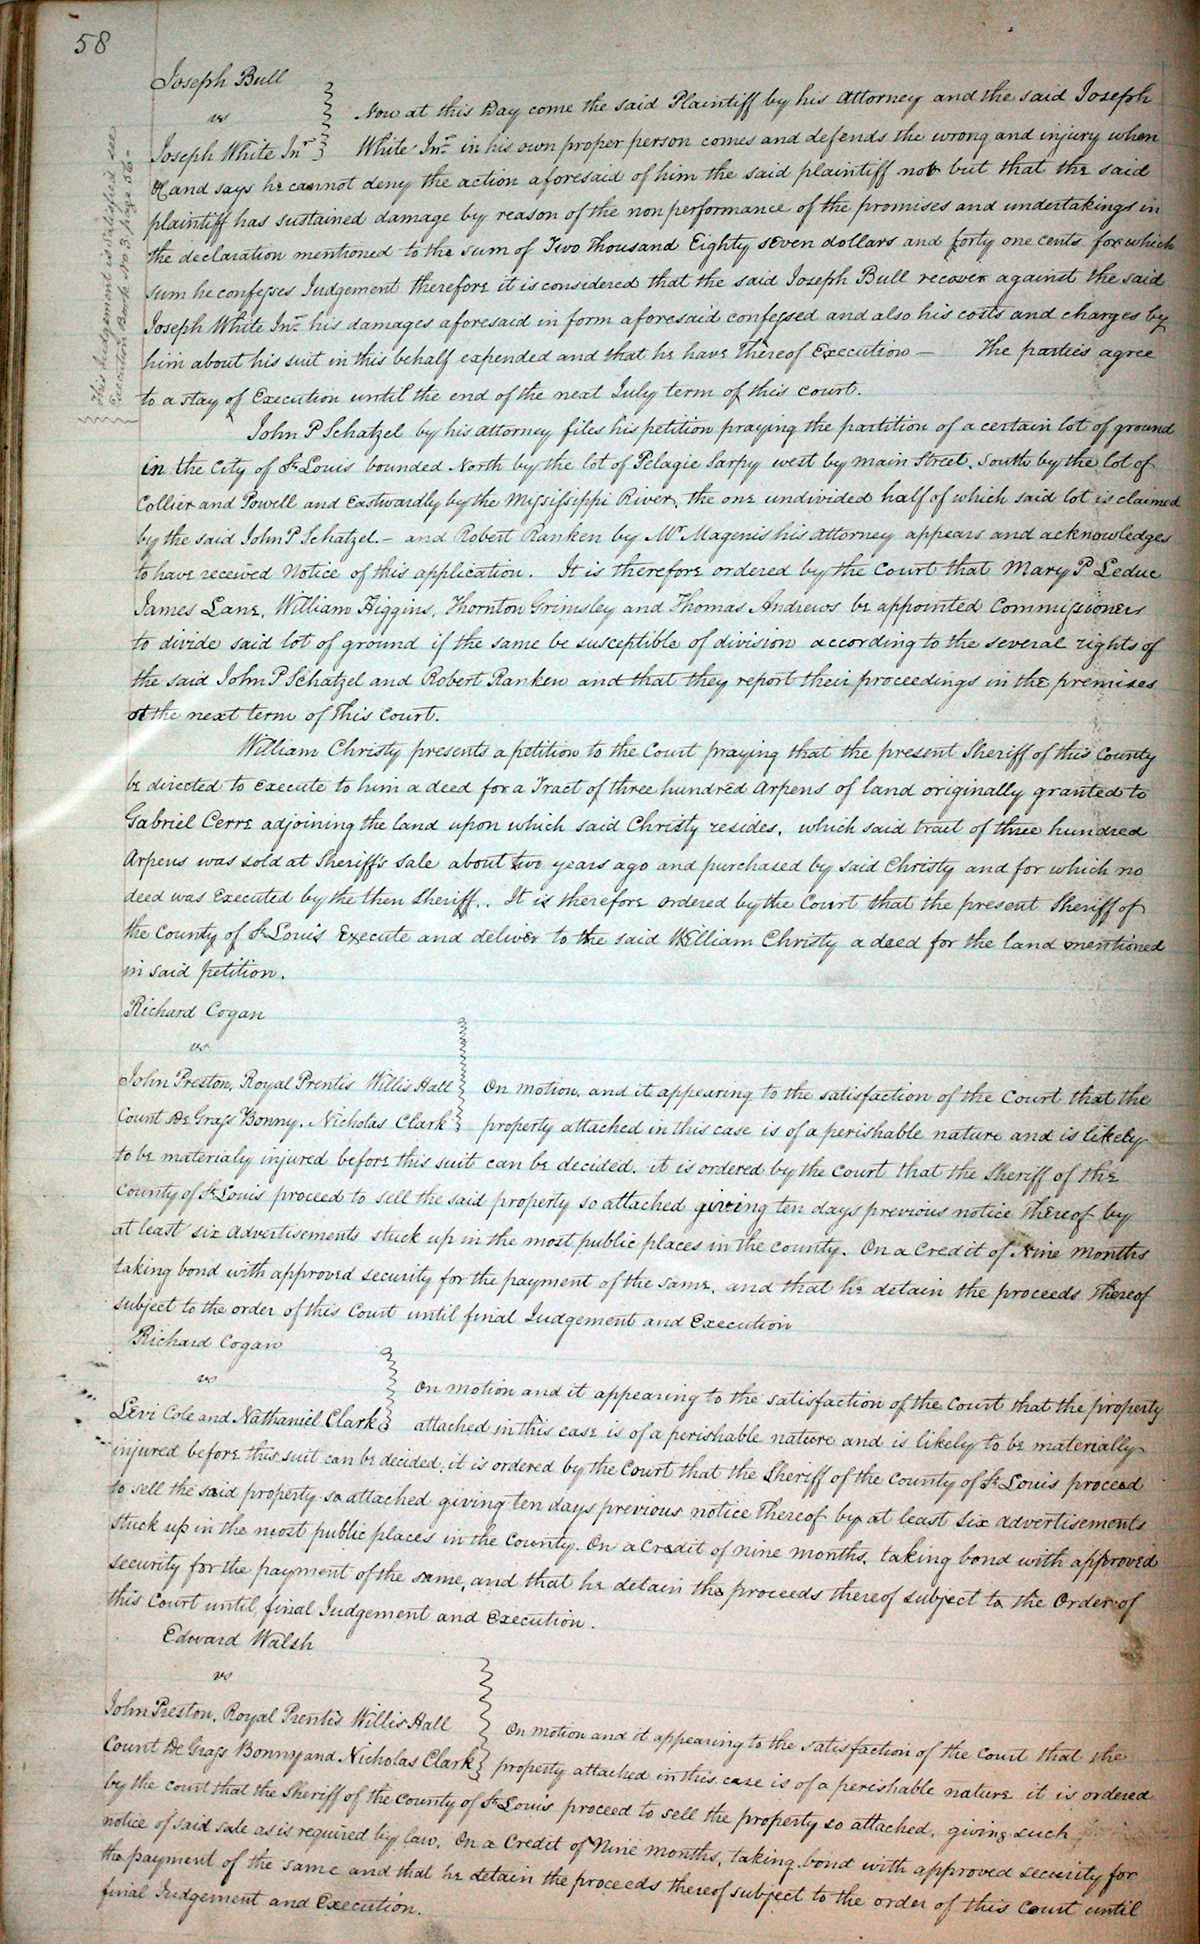 58
Joseph Bull
vs
Joseph White Jnr
Now at this Day come the said Plaintiff by his Attorney and the said Joseph
White Jnr in his own proper person comes and defends the wrong and injury when
&c and says he cannot deny the action aforesaid of him the said plaintiff nor but that the said
plaintiff has sustained damage by reason of the nonperformance of the promises and undertakings in
the declaration mentioned to the sum of Two Thousand Eighty seven dollars and forty one cents for which
sum he confesses Judgement therefore it is considered that the said Joseph Bull recover against the said
Joseph White Jnr his damages aforesaid in form aforesaid confessed and also his costs and charges by
him about his suit in this behalf expended and that he have Thereof Execution — The parties agree
to a stay of Execution until the end of the next July term of this court.
This Judgement is satisfied see
Execution Book No 3. page 56-
John P Schatzel by his Attorney files his petition praying the partition of a certain lot of ground
in the City of St Louis bounded North by the lot of Pelagie Sarpy west by main Street, South by the lot of
Collier and Powell and Eastwardly by the Mississippi River, the one undivided half of which said lot is claimed
by the said John P Schatzel - and Robert Ranken by Mr Magenis his Attorney appears and acknowledges
to have received Notice of this application. It is therefore ordered by the Court that Mary P Leduc
James Lane, William Higgins, Thornton Grimsley and Thomas Andrews be appointed Commissioners
to divide said lot of ground if the same be susceptible of division according to the several rights of
the said John P Schatzel and Robert Ranken and that they report their proceedings in the premises
at the next term of This Court.
William Christy presents a petition to the Court praying that the present Sheriff of this County
be directed to Execute to him a deed for a Tract of three hundred Arpens of land originally granted to
Gabriel Cerre adjoining the land upon which said Christy resides, which said tract of three hundred
Arpens was sold at Sheriff's sale about two years ago and purchased by said Christy and for which no
deed was Executed by the then Sheriff. It is therefore ordered by the Court that the present Sheriff of
the County of St Louis Execute and deliver to the said William Christy a deed for the land mentioned
in said petition.
Richard Cogan
vs
John Preston, Royal Prentis Willis Hall
Count De Grass Bonny, Nicholas Clark
On motion, and it appearing to the satisfaction of the Court that the
property attached in this case is of a perishable nature and is likely
to be materialy injured before this suit can be decided. it is ordered by the Court that the Sheriff of the
County of St Louis proceed to sell the said property so attached giving ten days previous notice Thereof by
at least six Advertisements stuck up in the most public places in the County. On a Credit of Nine months
taking bond with approved security for the payment of the same, and that he detain the proceeds Thereof
subject to the order of this Court until final Judgement and Execution
Richard Cogan
vs
Levi Cole and Nathaniel Clark
On motion and it appearing to the satisfaction of the Court that the property
attached in this case is of a perishable nature and is likely to be materially
injured before this suit can be decided, it is ordered by the Court that the Sheriff of the County of St Louis proceed
to sell the said property so attached giving ten days previous notice Thereof by at least six advertisements
stuck up in the most public places in the County. On a Credit of nine months, taking bond with approved
security for the payment of the same, and that he detain the proceeds thereof subject to the Order of
this Court until final Judgement and Execution.
Edward Walsh
vs
John Preston, Royal Prentis Willis Hall
Count De Grass Bonny and Nicholas Clark
On motion and it appearing to the satisfaction of the Court that the
property attached in this case is of a perishable nature it is ordered
by the court that the Sheriff of the County of St Louis proceed to sell the property so attached, giving such
notice of said sale as is required by law. On a Credit of Nine months, taking bond with approved security for
the payment of the same and that he detain the proceeds thereof subject to the order of this Court until
final Judgement and Execution.